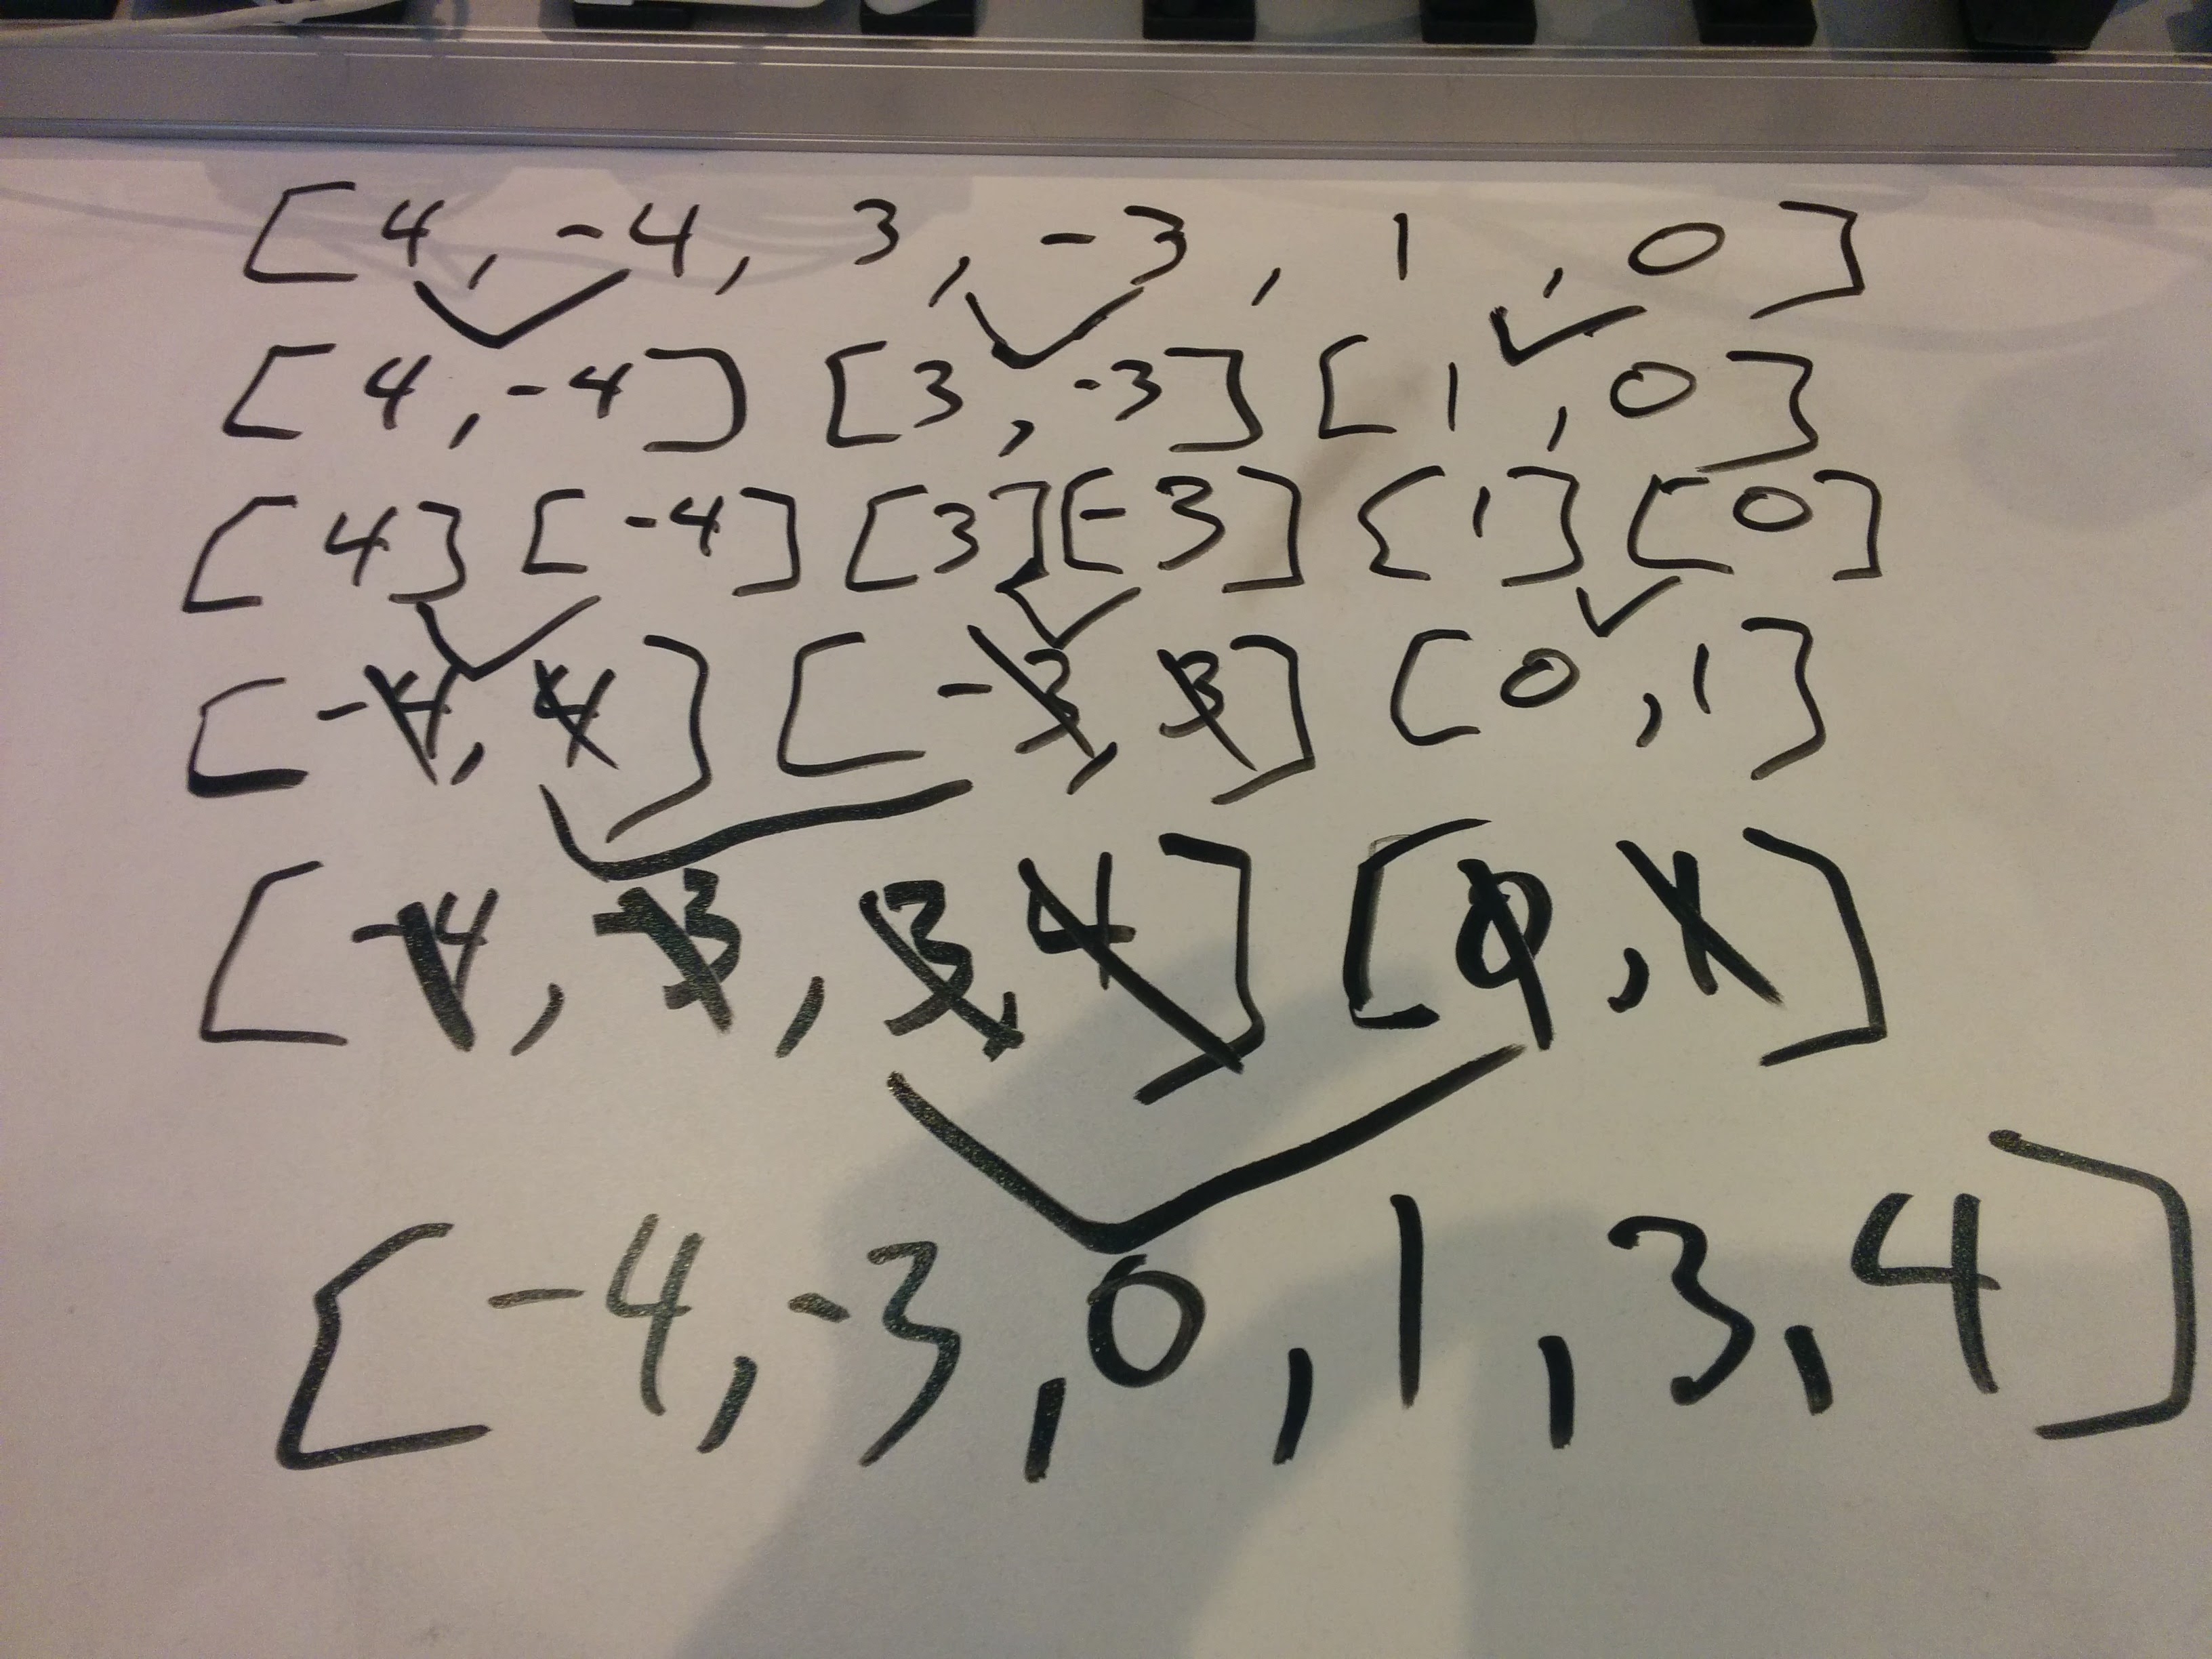 [4, -4, 3, -3, 1, 0]
[4, -4] [3, -3] [1, 0]
[4] [-4] [3] [-3] [1] [0]
[-4, 4] [-3, 3] [0, 1]
[-4, -3, 3, 4] [0, 1]
[-4, -3, 0, 1, 3, 4]